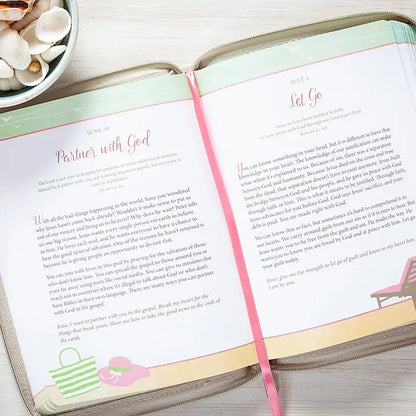 JUNE 30
Partner with God
The Lord is not slow in keeping his promise, as some understand slowness.
Instead he is patient with you, not wanting anyone to perish, but everyone to
come to repentance.
2 PETER 3:9 NIV
With all the bad things happening in the world, have you wondered
why Jesus hasn't come back already? Wouldn't it make sense to put us
out of our misery and bring us to heaven? Why does he wait? Peter tells
us one big reason. Jesus wants every single person on earth to believe
hear the good news of salvation. One of the reasons he hasn't returned is
because he is giving people an opportunity to do just that.
You can join with Jesus in this goal by praying for the salvation of those
who don't know him. You can spread the gospel to those around you or
even far away using tools like social media. You can give to missions that
reach out in countries where it's illegal to talk about God or who don't
have Bibles in their own language. There are many ways you can partner
with God in the gospel.
Jesus, I want to partner with you in the gospel. Break my heart for the
things that break yours. Show me how to take the good news to the ends of
the earth.
JULY 1
Let Go
Since we have been justified by faith,
we have peace with God through our Lord Jesus Christ.
ROMANS 5:1
You can know something in your head, but it is different to have that
knowledge in your heart. The knowledge of our justification can make
between God and humanity. Because Jesus died on the cross and rose
from the dead, that separation doesn't have to exist anymore. He is
the bridge between God and his people, and he gave us peace with God
through faith in him. This is what it means to be justified: through faith,
Jesus advocates for you before God. God sees Jesus' sacrifice, and your
debt is paid. You are made right with God.
We can know this as fact, but sometimes it's hard to comprehend it in
our hearts. We carry around guilt from our sin as if it is ours to bear. But
Jesus wants you to be free from the guilt and sin. He made the way. He
wants you to know you are loved by God and at peace with him. Let go of
your guilt today.
Jesus, give me the strength to let go of guilt and know in my heart how loved
I am by you.